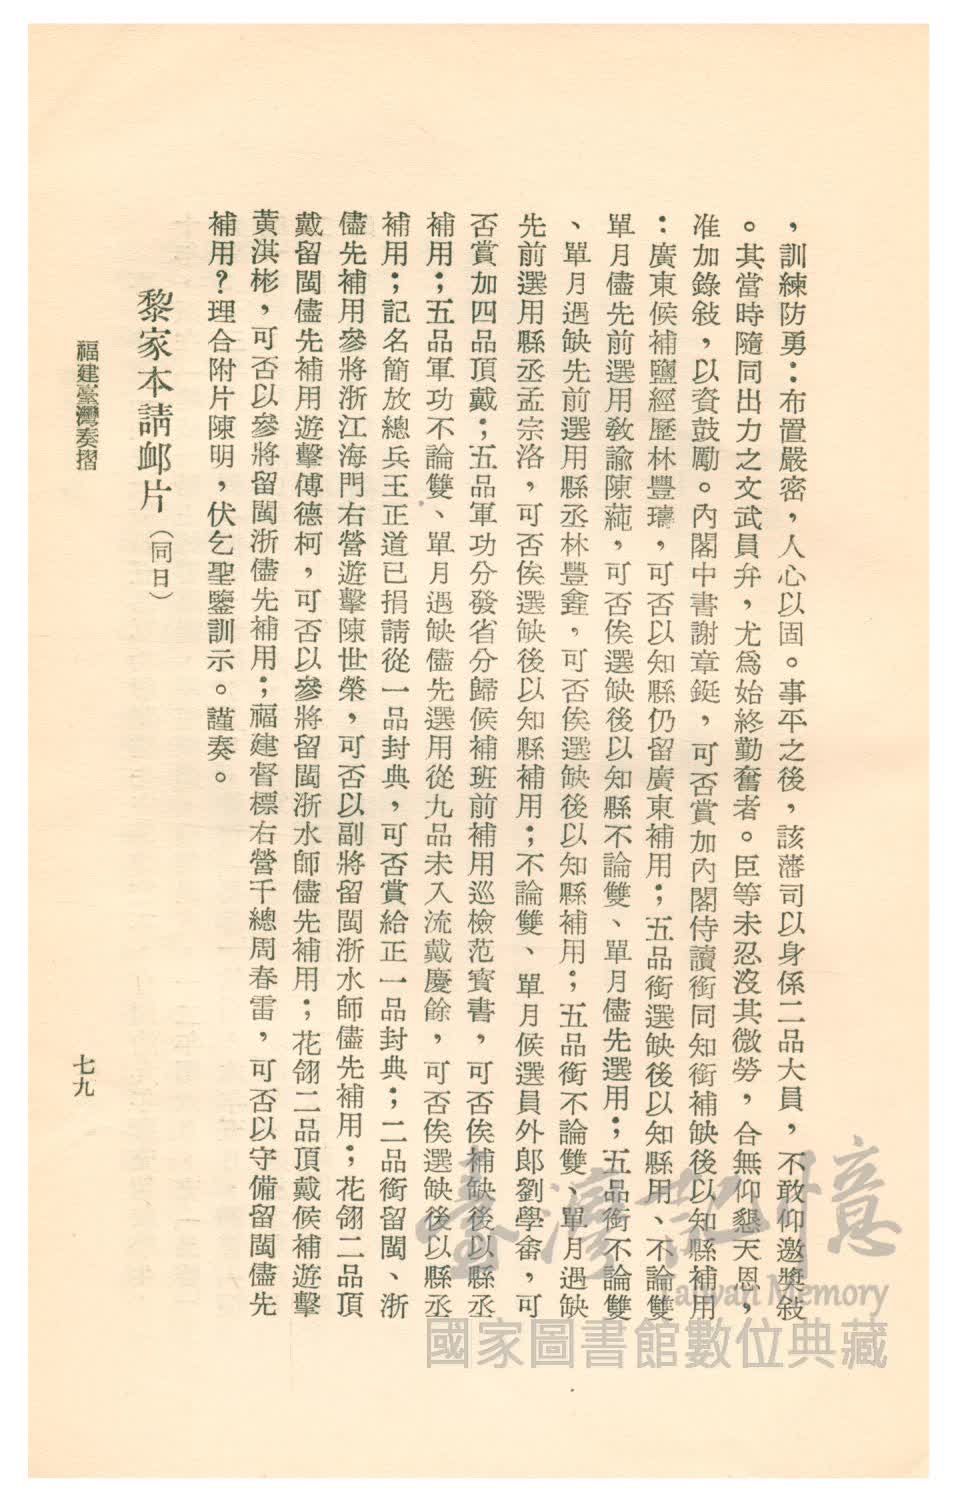 ，訓練防勇：布置嚴密，人心以固。事平之後，該藩司以身係二品大員，不敢仰邀獎敍
。其當時隨同出力之文武員弁，尤爲始終勤奮者。臣等未忍沒其微勞，合無仰懇天恩，
准加錄敍，以資鼓勵。內閣中書謝章鋌，可否賞加內閣侍讀銜同知銜補缺後以知縣補用
：廣東候補鹽經歷林豐璹，可否以知縣仍留廣東補用；五品銜選缺後以知縣用、不論雙
單月儘先前選用敎諭陳蒓，可否俟選缺後以知縣不論雙、單月儘先選用；五品銜不論雙
、單月遇缺先前選用縣丞林豐鑫，可否俟選缺後以知縣補用；五品銜不論雙、單月遇缺
先前選用縣丞孟宗洛，可否俟選缺後以知縣補用；不論雙、單月候選員外郎劉學畬，可
否賞加四品頂戴；五品軍功分發省分歸候補班前補用巡檢范寶書，可否俟補缺後以縣丞
補用；五品軍功不論雙、單月遇缺儘先選用從九品未入流戴慶餘，可否俟選缺後以縣丞
補用；記名簡放總兵王正道已捐請從一品封典，可否賞給正一品封典；二品銜留閩、浙
儘先補用參將浙江海門右營遊擊陳世榮，可否以副將留閩浙水師儘先補用；花翎二品頂
戴留閩儘先補用遊擊傅德柯，可否以參將留閩浙水師儘先補用；花翎二品頂戴候補遊擊
黃淇彬，可否以參將留閩浙儘先補用；福建督標右營千總周春雷，可否以守備留閩儘先
補用？理合附片陳明，伏乞聖鑒訓示。謹奏。
黎家本請卹片（同日）
福建臺灣奏摺
七九
臺灣記憶
Taiwan Memory
國家圖書館數位典藏